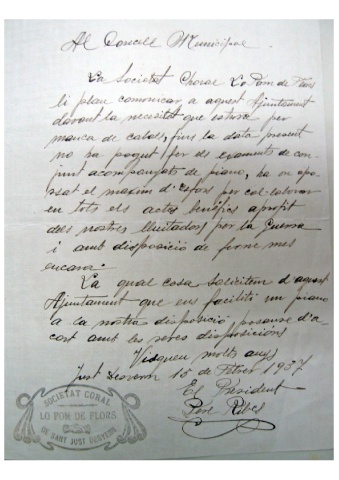 Al Concell Municipal
La Societat Choral Lo Pom de Flors
li plau comunicar a aquest Ajuntament
davant la necesitat que estava per
manca de cabal, fins la data present
no ha pogut fer els ensaments de con-
junt acompanyats de piano, ha en apo-
sat el maxim d'esfors per col·laborar
en tots els actes benéfics a profit
dels nostres lluitadors per la Guerra
i amb disposició de ferne mes
encara.
La qual cosa solicitem d'aquest
Ajuntament que ens faciliti un piano
a la nostra disposició posanse d'a-
cort amb les seves disposicións
Visqueu molts anys
Just Desvern 15 de Febrer 1937
El President
Pere Ribes
SOCIETAT CORAL
LO POM DE FLORS
DE SANT JUST DESVERN